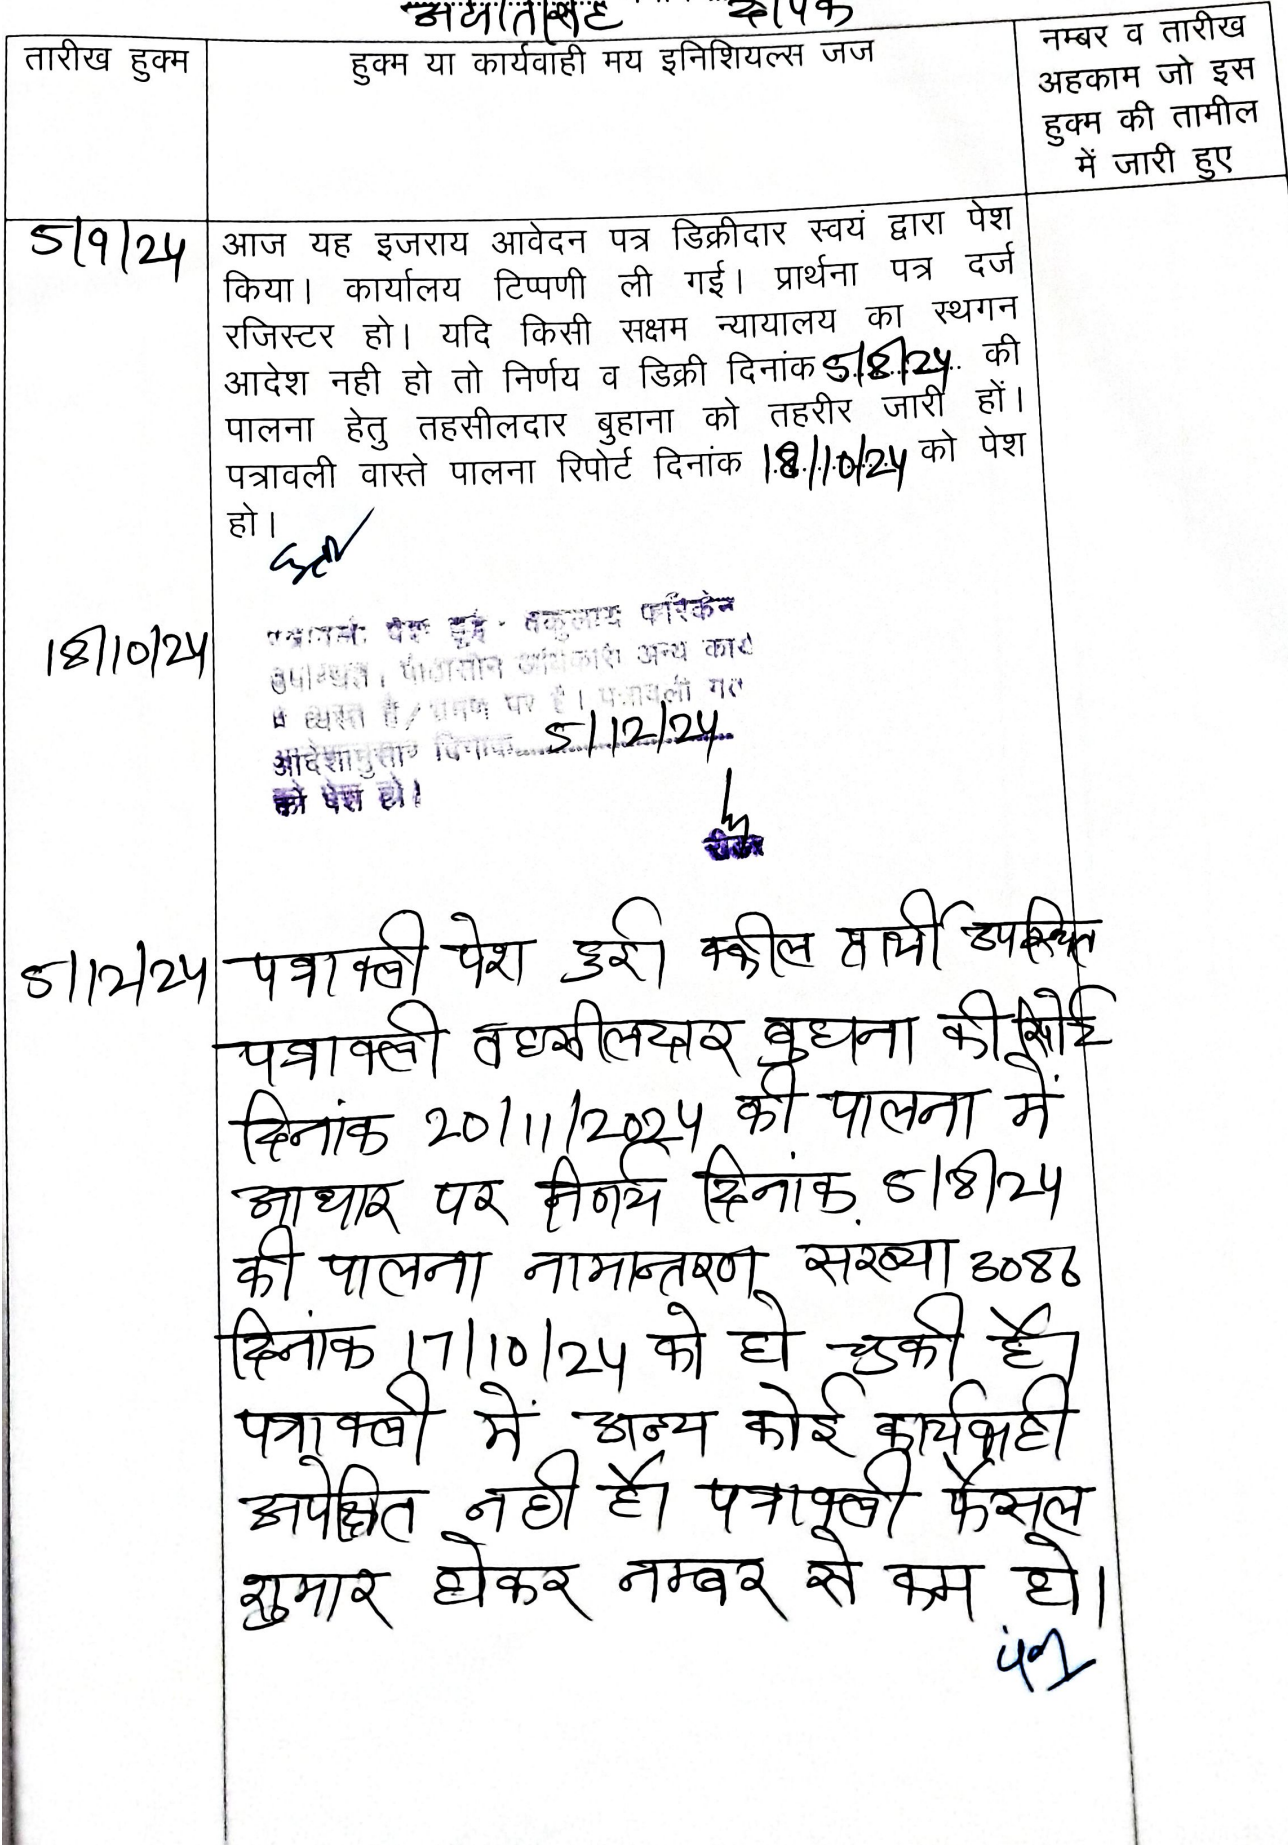 दीपक
तारीख हुक्म
हुक्म या कार्यवाही मय इनिशियल्स जज
नम्बर व तारीख
अहकाम जो इस
हुक्म की तामील
में जारी हुए
5/9/24
आज यह इजराय आवेदन पत्र डिक्रीदार स्वयं द्वारा पेश
किया। कार्यालय टिप्पणी ली गई। प्रार्थना पत्र दर्ज
रजिस्टर हो। यदि किसी सक्षम न्यायालय का स्थगन
आदेश नही हो तो निर्णय व डिक्री दिनांक 5/8/24 की
पालना हेतु तहसीलदार बुहाना को तहरीर जारी हों।
पत्रावली वास्ते पालना रिपोर्ट दिनांक 18/10/24 को पेश
हो।
18/10/24
पत्रावली पेश हुई। वकुलाय फरिकेन
उपस्थित। पीठासीन अधिकारी अन्य कार्य
में व्यस्त है/भ्रमण पर है। पत्रावली गत
आदेशानुसार दिनांक 5/12/24
को पेश हो।
रीडर
5/12/24
पत्रावली पेश हुई। वकील प्रार्थी उपस्थित
पत्रावली तहसीलदार बुहाना की रिपोर्ट
दिनांक 20/11/2024 की पालना में
आधार पर निर्णय दिनांक 5/8/24
की पालना नामान्तरण संख्या 3086
दिनांक 17/10/24 को हो चुकी है।
पत्रावली में अन्य कोई कार्यवाही
अपेक्षित नही है। पत्रावली फैसल
शुमार होकर नम्बर से कम हो।